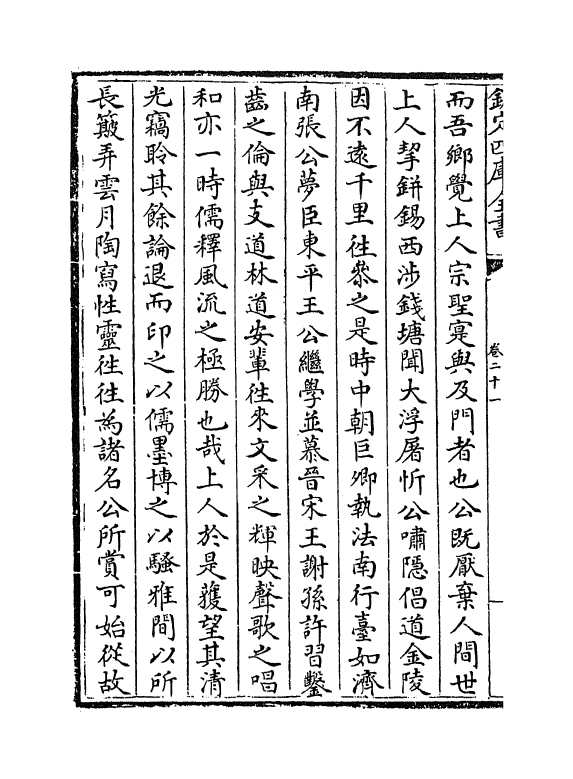 欽定四庫全書
卷二十一
而吾鄉覺上人宗聖寔與及門者也公既厭棄人間世
上人挈缾錫西涉錢塘聞大浮屠忻公嘯隱倡道金陵
因不遠千里徃叅之是時中朝巨卿執法南行臺如濟
南張公夢臣東平王公繼學並慕晉宋王謝孫許習鑿
齒之倫與支道林道安輩徃來文采之輝映聲歌之唱
和亦一時儒釋風流之極勝也哉上人於是獲望其清
光竊聆其餘論退而印之以儒墨博之以騷雅間以所
長簸弄雲月陶寫性靈徃徃為諸名公所賞可始從故